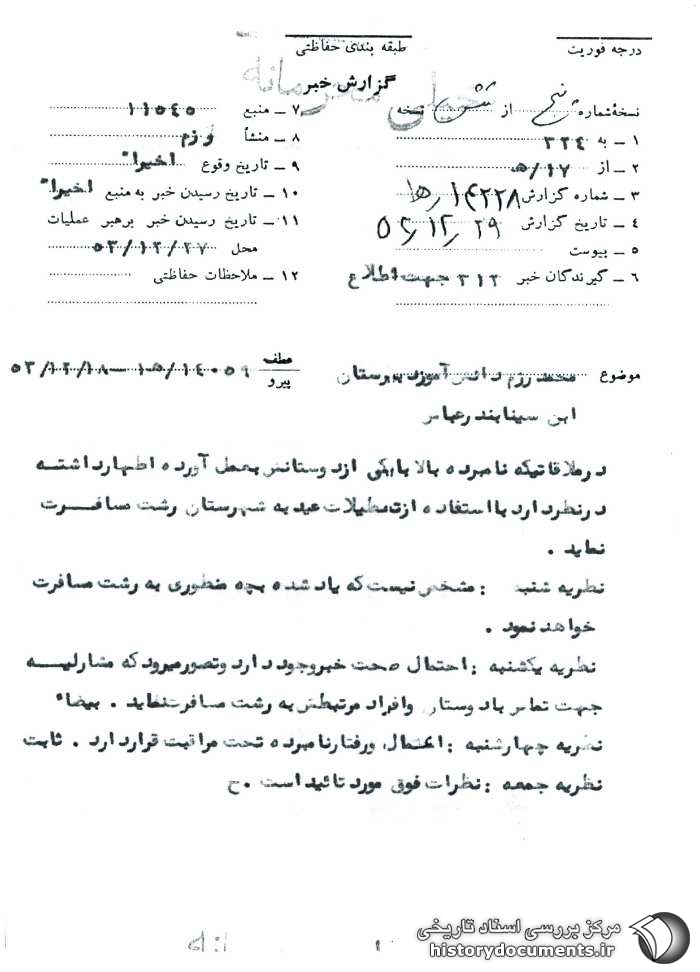 درجه فوریت
طبقه بندی حفاظتی
خیلی محرمانه
گزارش خبر
نسخهٔ شماره پنج از شش نسخه
۱ ــ به ۳۳٤
۲ ــ از ۱۷/ﻫ
۳ ــ شماره گزارش ۱۴۲۲۸/۵ﻫ
۴ ــ تاریخ گزارش ۲۹/۱۲/۵۳
۵ ــ پیوست
۶ ــ گیرندگان خبر ۳۱۲ جهت اطلاع
۷ ــ منبع ۱۱٥٤٥
۸ ــ منشأ
۹ ــ تاریخ وقوع اخیرا"
۱۰ ــ تاریخ رسیدن خبر به منبع اخیرا"
۱۱ ــ تاریخ رسیدن خبر برهبر عملیات
محل ٥۳/۱۲/۲۷
۱۲ ــ ملاحظات حفاظتی
موضوع محمد رزم دانش آموز دبیرستان
ابن سینا بندرعباس
عطف
پیرو
۱٤۰٥۹/۱ﻫ ــ ٥۳/۱۲/۱۸
در ملاقاتیکه نامبرده بالا با یکی از دوستانش بعمل آورده اظهار داشتــه
در نظر دارد با استفاده از تعطیلات عید به شهرستان رشت مسافــرت
نماید .
نظریه شنبه : مشخص نیست که یاد شده بچه منظوری به رشت مسافرت
خواهد نمود .
نظریه یکشنبه : احتمال صحت خبر وجود دارد و تصور میرود که مشارلیــه
جهت تماس با دوستان وافراد مرتبطش به رشت مسافرت نماید . بیضاء
نظریه چهارشنبه : اعمال ورفتار نامبرده تحت مراقبت قرار دارد . ثابت
نظریه جمعه : نظرات فوق مورد تائید است .ح
مرکز بررسی اسناد تاریخی
historydocuments.ir